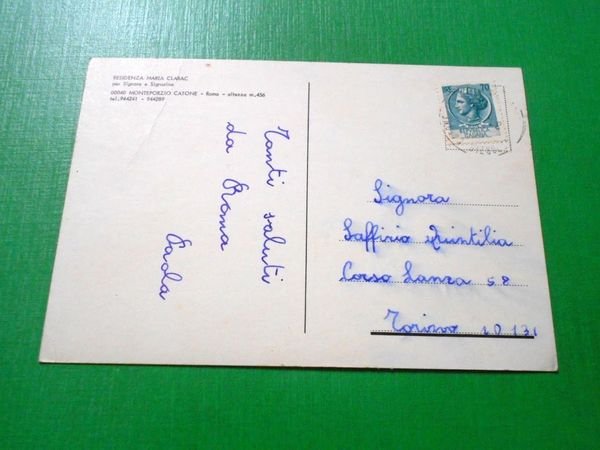 RESIDENZA MARIA CLARAC
per Signore e Signorine
00040 MONTEPORZIO CATONE - Roma - altezza m. 456
tel. 944241 - 944289
Tanti saluti
da Roma
Paola
10
Signora
Saffirio Quintilia
Corso Lanza 58
Torino 10131